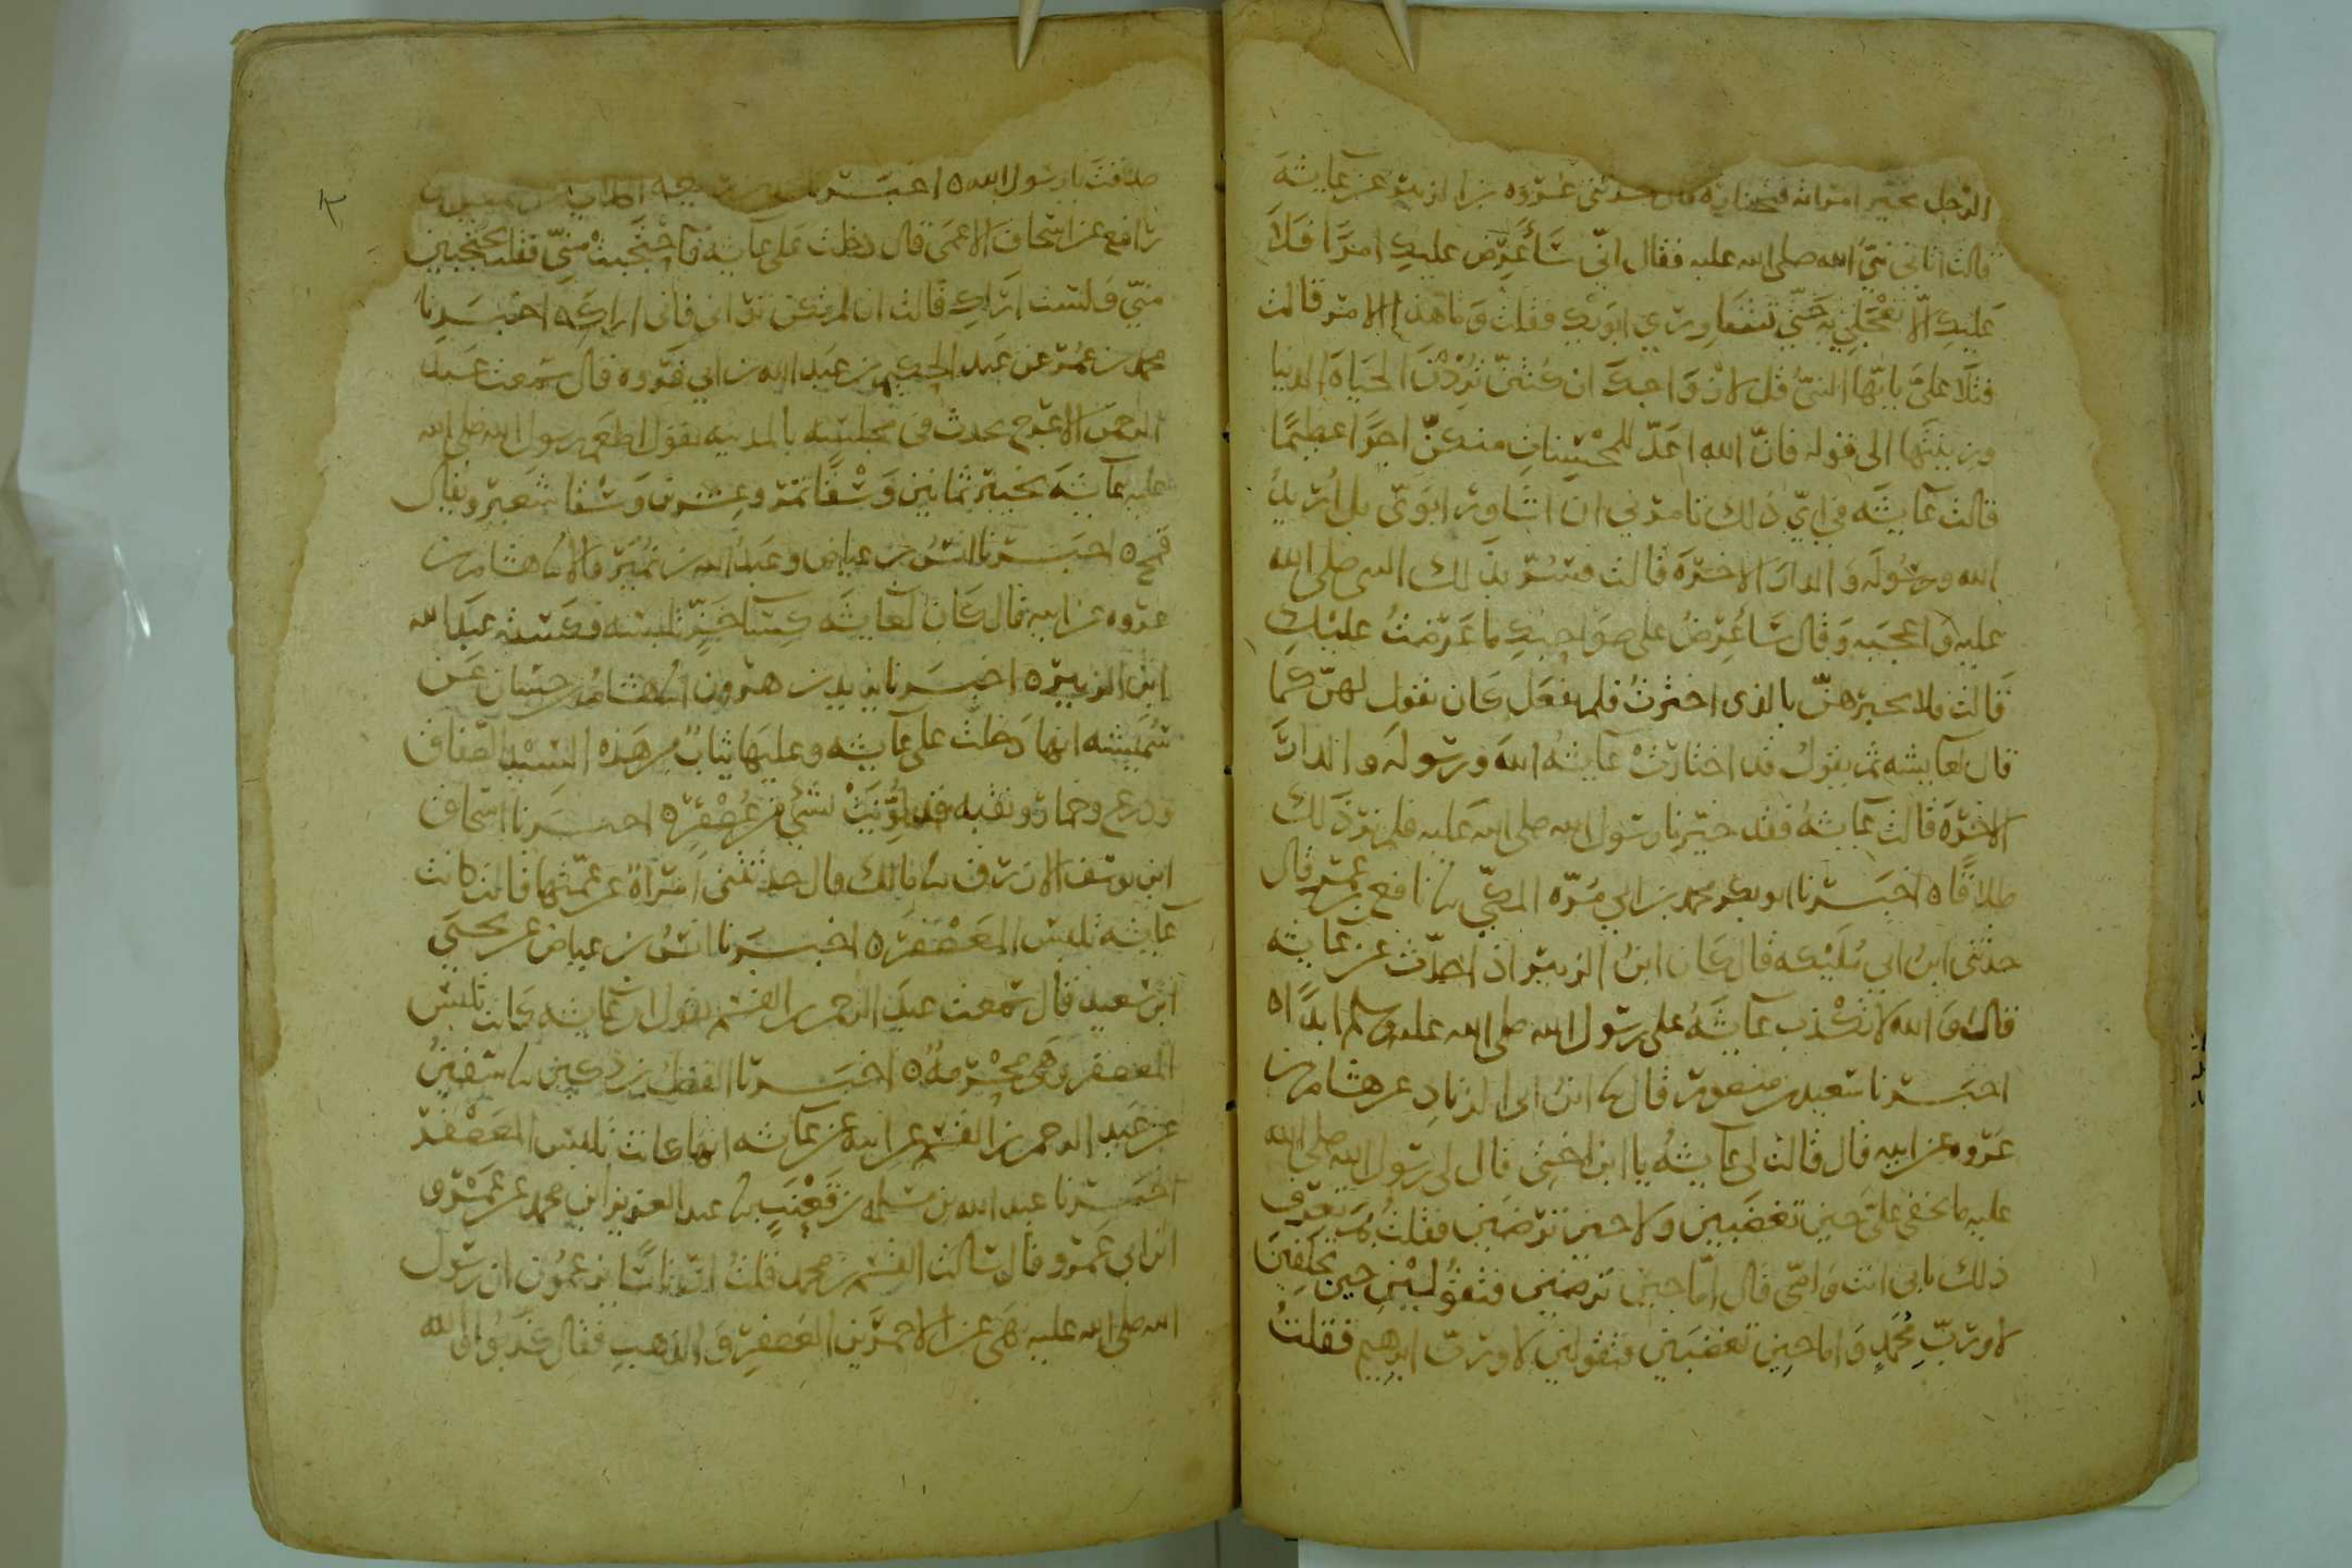 الرجل يخير امراته فتختاره قال حدثني عروه بن الزبير عن عايشه
قالت اتاني نبي الله صلى الله عليه فقال اني سَأعرض عليك امرًا فلا
عليك الّا تعجلي به حتى تشاوري ابويك فقلت وما هذا الامر قالت
فتلا عليّ يايها النبي قل لازواجك ان كنتن تردن الحياه الدنيا
وزينتها الى قوله فان الله اعدّ للمحسنات منكن اجرًا عظيمًا
قالت عايشه في اي ذلك تامرني ان اشاور ابويّ بل اريد
الله ورسوله والدار الاخره قالت فسُرّ بذلك النبى صلى الله
عليه واعجبه وقال سأعرض على صواحبك ما عرضت عليك
قالت فلا تخبرهن بالذى اخترت فلم يفعل كان يقول لهن كما
قال لعايشه ثم يقول قد اختارت عايشه الله ورسوله والدار
الاخره قالت عايشه فقد خيرنا رسول الله صلى الله عليه فلم نر ذلك
طلاقًا ه اخبرنا ابو بكر محمد بن ابي مُرّه المكي نا نافع بن عمر قال
حدثني ابن ابي مليكه قال كان ابن الزبير اذا حدّث عن عايشه
قال والله لا تكذب عايشه على رسول الله صلى الله عليه وسلم ابدًا ه
اخبرنا سعيد بن منصور قال نا ابن ابى الزناد عن هشام بن
عروه عن ابيه قال قالت لي عايشه يا ابن اختي قال لي رسول الله صلى الله
عليه ما يخفى عليّ حين تغضبين ولا حين ترضين فقلت بم تعرف
ذلك بابى انت وامي قال امّا حين ترضين فتقولين حين تحلفين
لا ورب محمد واما حين تغضبين فتقولين لا ورب ابرهيم فقلت
صدقت يا رسول الله ه اخبرنا
بن افع عن اسحاق الاعمى قال دخلت على عايشه فاحتجبت مني فقلت تحتجبين
منّي ولست اراك قالت ان لم تكن تراني فاني اراك ه اخبرنا
محمد بن عمر عن عبد الحكيم بن عبد الله بن ابي فروه قال سمعت عبد
الرحمن الاعرج يحدث في مجلسه بالمدينه يقول اطعم رسول الله صلى الله
عليه عايشه بخيبر ثمانين وسقًا تمر وعشرين وسقا شعير ويقال
قمح ه اخبرنا انس بن عياض وعبد الله بن نمير قالا نا هشام بن
عروه عن ابيه قال كان لعايشه كسا خزّ تلبسه فكسته عبد الله
ابن الزبير ه اخبرنا يزيد بن هرون انا هشام بن حسان عن
شميسه انها دخلت على عايشه وعليها ثياب من هذه السيد الصفاق
ودرع وخمار ونقبه قد لوّنت بشي من عصفر ه اخبرنا اسحاق
ابن يوسف الازرق نا مالك قال حدثتني امراة عن عمّتها قالت كانت
عايشه تلبس المعصفره ه اخبرنا انس بن عياض عن يحيى
ابن سعيد قال سمعت عبد الرحمن بن القسم يقول ان عايشه كانت تلبس
المعصفر وهي محرمه ه اخبرنا الفضل بن دكين نا سفين
عن عبد الرحمن بن القسم عن ابيه عن عايشه انها كانت تلبس المعصفر
اخبرنا عبد الله بن مسلمه بن قعنب نا عبد العزيز ابن محمد عن عمرو
ابن ابي عمرو قال سالت القسم بن محمد قلت ان ناسًا يزعمون ان رسول
الله صلى الله عليه نهى عن الاحمرين العصفر والذهب فقال كذبوا والله